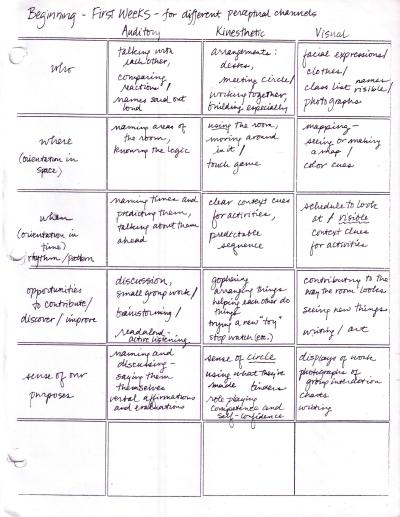 Beginning - First Weeks - for different perceptual channels
Auditory
Kinesthetic
Visual
who
talking with
each other,
comparing
reactions /
names and out
loud
arrangements:
desks,
meeting circle /
working together,
building especially
facial expressions /
clothes /
class list names
visible /
photographs
where
(orientation in
space)
naming areas of
the room,
knowing the logic
using the room,
moving around
in it /
touch game
mapping -
seeing or making
a map /
color cues
when
(orientation in
time)
rhythm / pattern
naming times and
predicting them,
talking about them
ahead
clear context cues
for activities,
predictable
sequence
schedule to look
at / visible
context clues
for activities
opportunities
to contribute /
discover / improve
discussion,
small group work /
brainstorming /
readaloud -
active listening
gophering
arranging things
helping each other do
things
trying a new "toy"
stop watch (etc.)
contributing to the
way the room looks
seeing new things
writing / art
sense of our
purposes
naming and
discussing -
saying them
themselves
verbal affirmations
and evaluations
sense of circle
using what they've
made
role playing
competence and
self-confidence
displays of work
photographs of
group interaction
charts
writing